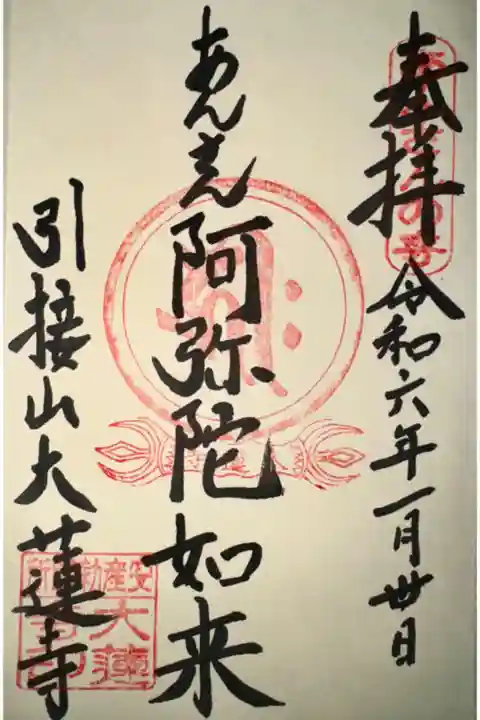 奉拝 令和六年一月丗日
あんざん 阿弥陀如来
引接山大蓮寺
大蓮寺印